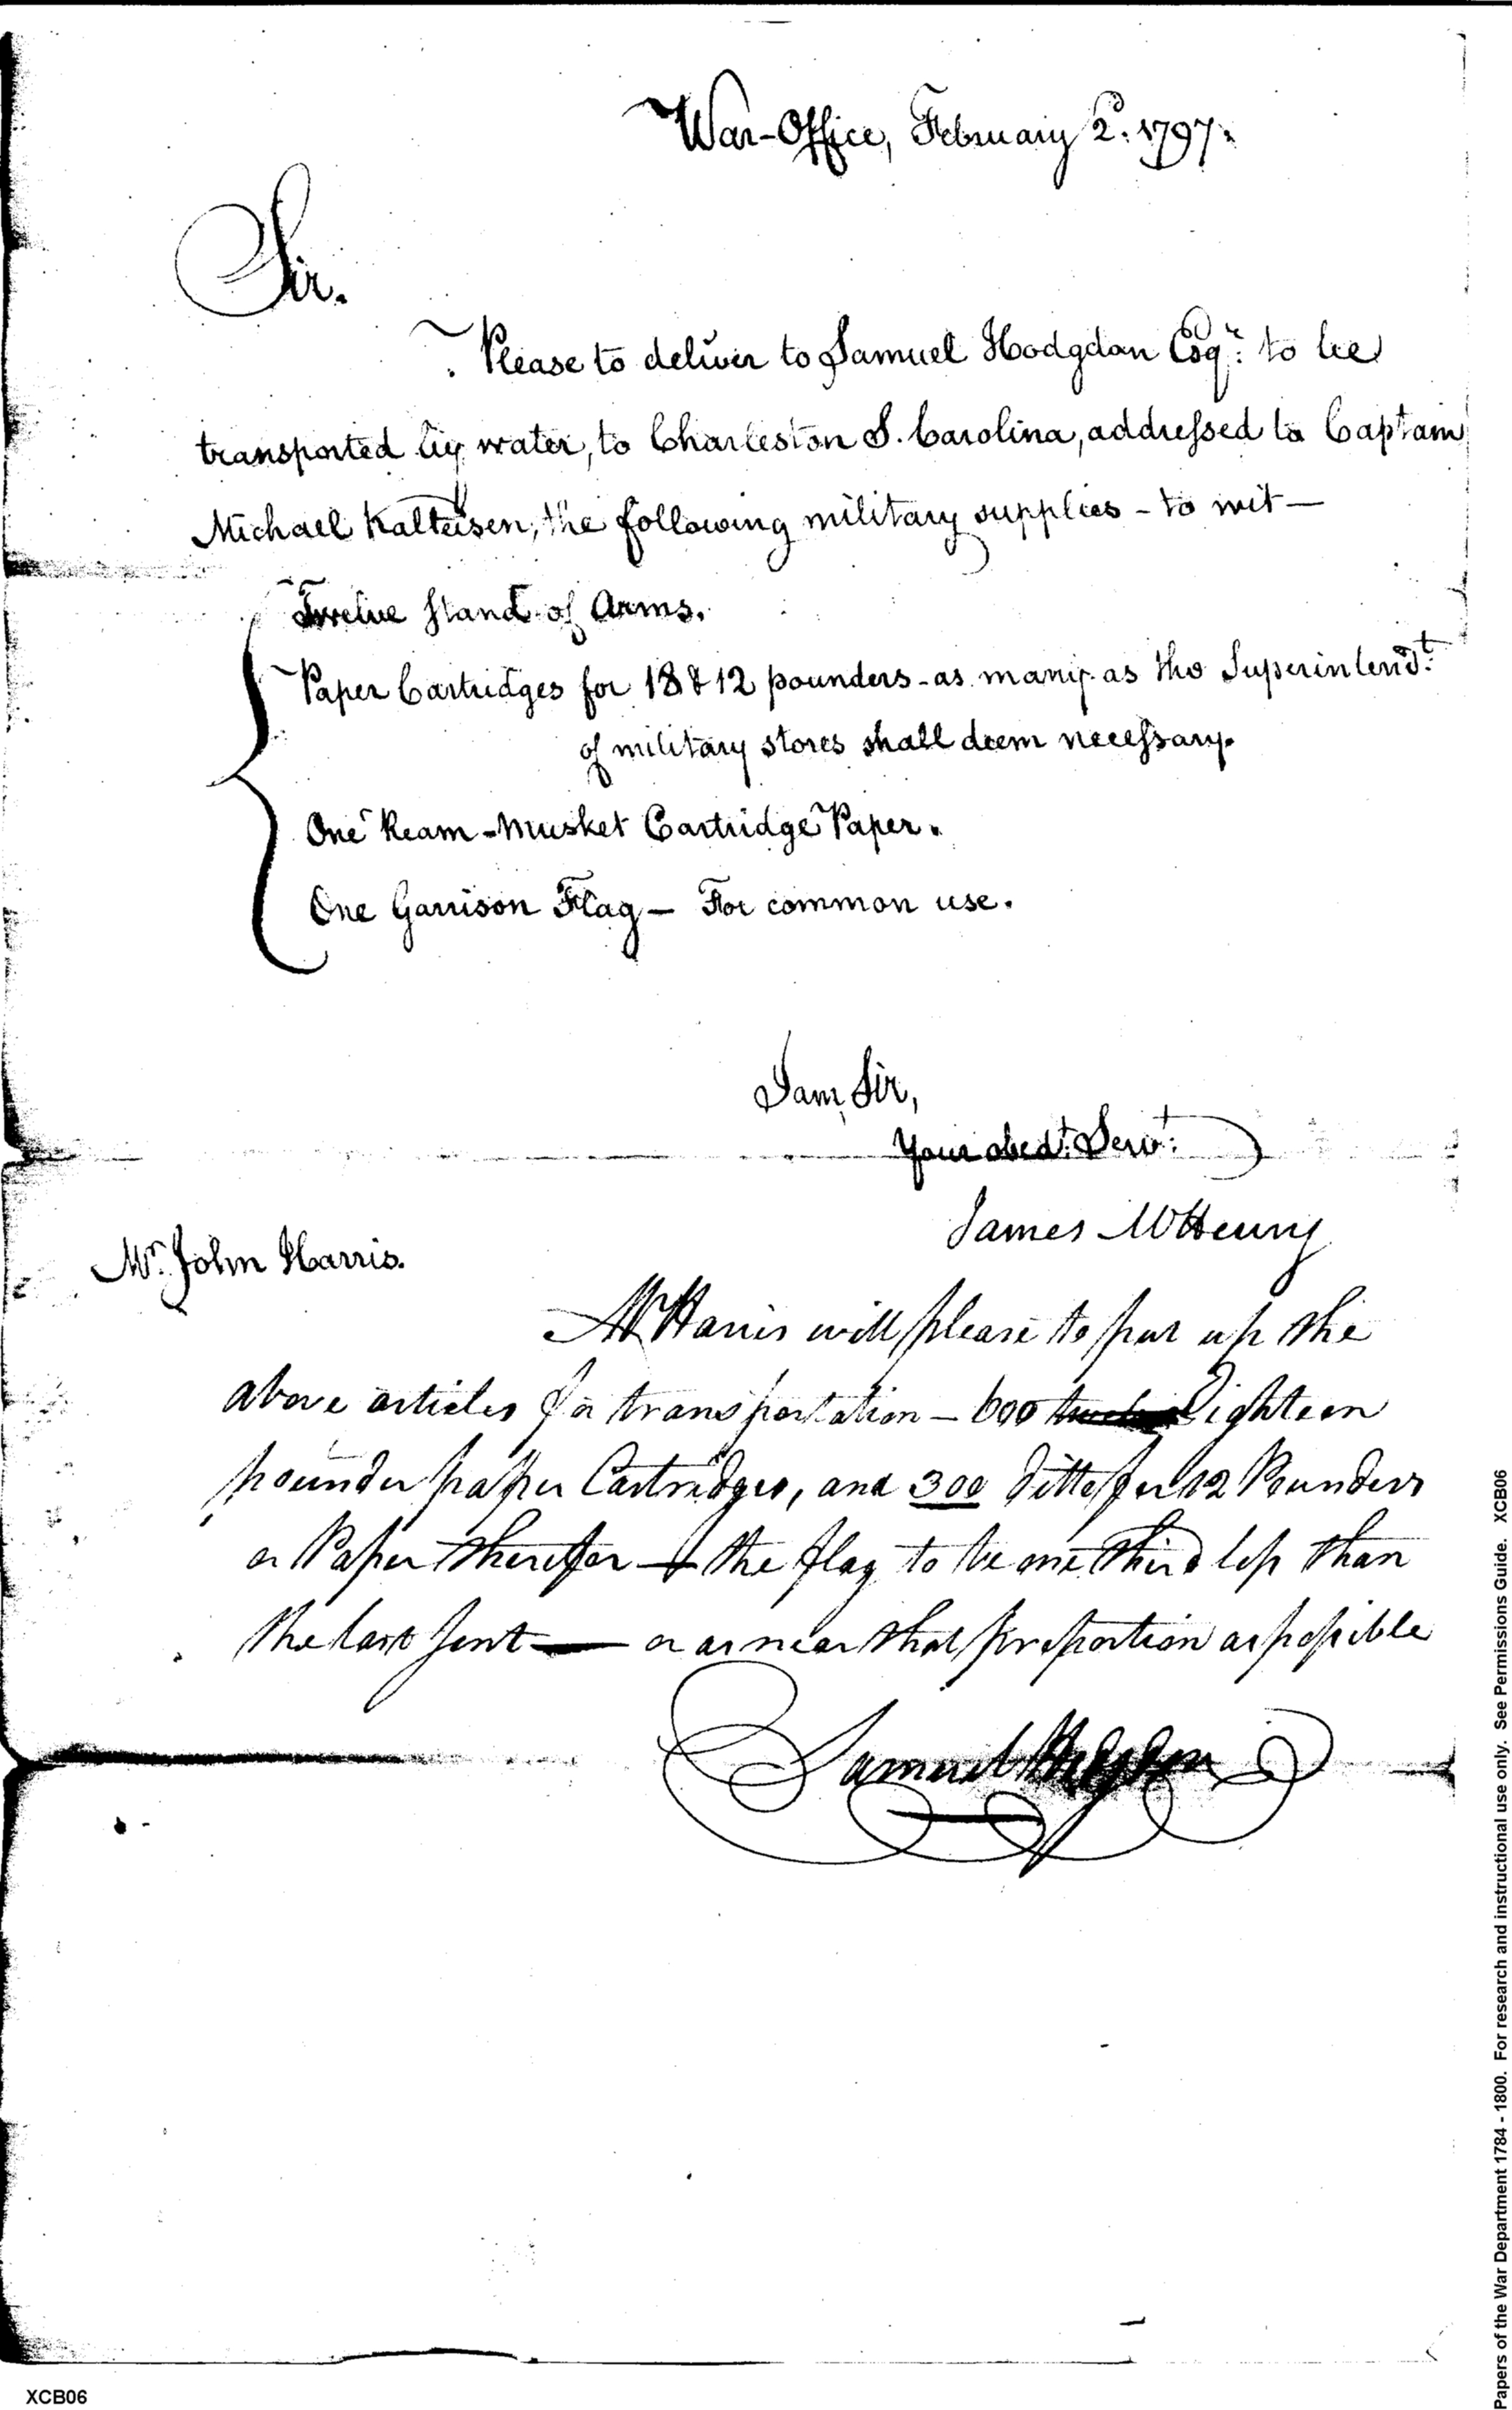 War-Office, February 2d. 1797.
Sir.
Please to deliver to Samuel Hodgdon Esqr: to be
transported by water, to Charleston S. Carolina, addressed to Captain
Michael Kalteisen, the following military supplies - to wit —
Twelve Stand of Arms.
Paper Cartridges for 18 & 12 pounders - as many as the Superintendt:
of military stores shall deem necessary.
One Ream - Musket Cartridge Paper.
One Garrison Flag — For common use.
I am, Sir,
Your obedt: Servt:
James McHenry
Mr. John Harris.
Mr Harris will please to put up the
above articles for transportation — 600 Eighteen
pounder paper Cartridges, and 300 ditto for 12 Pounders
or Paper therefor — the flag to be one third less than
the last sent — or as near that proportion as possible
Samuel Hodgdon
XCB06
Papers of the War Department 1784 - 1800. For research and instructional use only. See Permissions Guide. XCB06